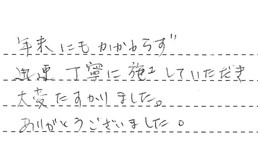 年末にもかかわらず
迅速 丁寧に施工していただき
大変たすかりました。
ありがとうございました。